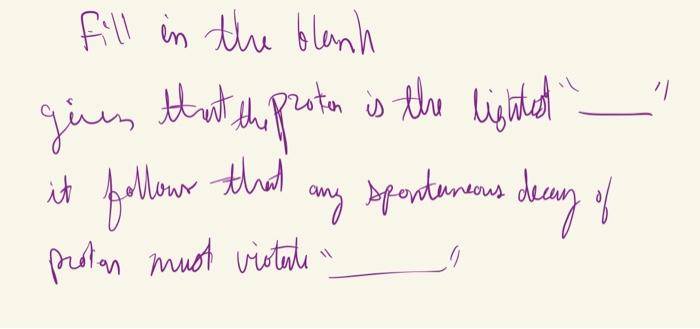 Fill in the blank
given that the proton is the lightest "____"
it follows that any spontaneous decay of
proton must violate "______"